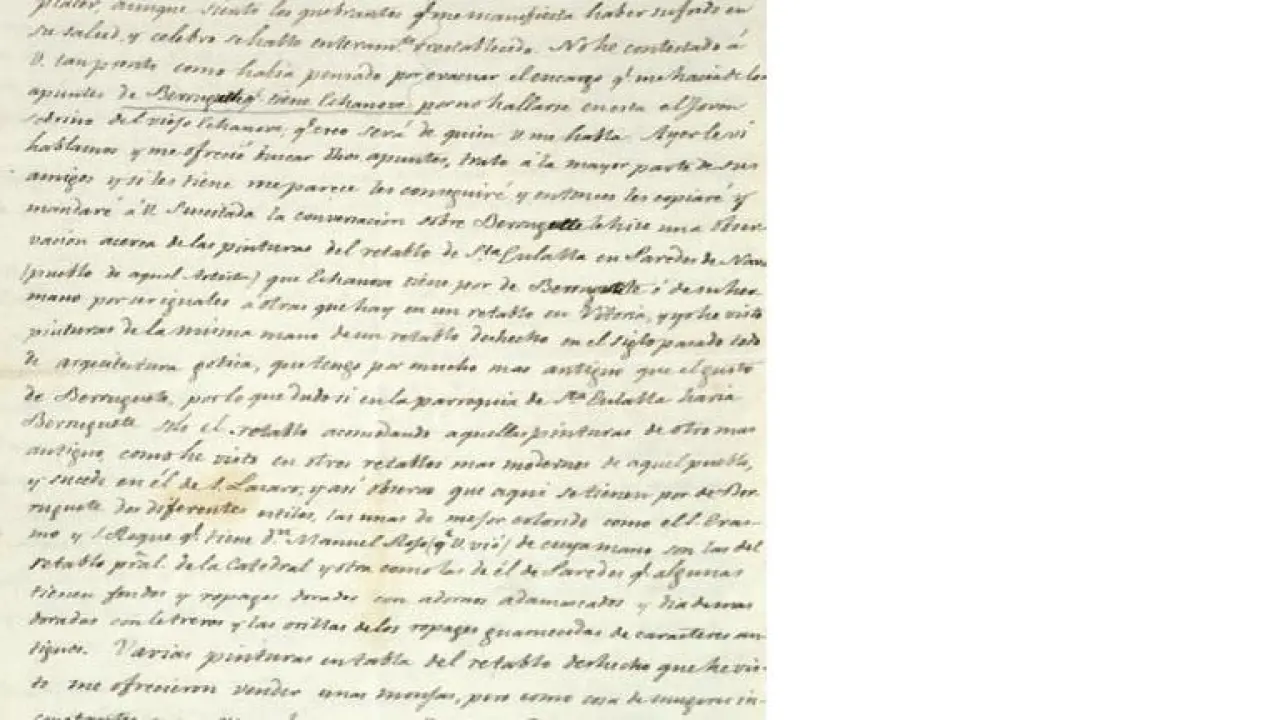 placer, aunque siento los quebrantos q.e me manifiesta haber sufrido en
su salud, y celebro se halle enteram.te restablecido. No he contestado á
V. tan pronto como habia pensado por evacuar el encargo q.e me hacia de los
apuntes de Berruguete q.e tiene Echanove por no hallarse en esta el Joven
sobrino del viejo Echanove, q.e creo será de quien V. me habla. Ayer le vi
hablamos y me ofreció buscar dhos apuntes, trato á la mayor parte de sus
amigos y si los tiene me parece los conseguiré y entonces los copiaré y
mandaré á V. Suscitada la conversacion sobre Berruguete le hice una obser-
vacion acerca de las pinturas del retablo de S.ta Eulalia en Paredes de Nava
(pueblo de aquel Artista) que Echanove tiene por de Berruguete ó de su her-
mano por ser iguales á otras que hay en un retablo en Vitoria, y yo he visto
pinturas de la misma mano de un retablo deshecho en el siglo pasado todo
de arquitectura gotica, que tengo por mucho mas antiguo que el gusto
de Berruguete, por lo que dudo si en la parroquia de S.ta Eulalia haria
Berruguete solo el retablo acomodando aquellas pinturas de otro mas
antiguo, como he visto en otros retablos mas modernos de aquel pueblo,
y sucede en él de S. Lazaro, y asi observo que aqui se tienen por de Ber-
ruguete dos diferentes estilos, las unas de mejor colorido como el S. Eras-
mo y S. Roque q.e tiene d.n Manuel (q.e V. vió) de cuya mano son las del
retablo pral. de la Catedral y otra como las de él de Paredes q.e algunas
tienen fondos y ropages dorados con adornos adamascados y diademas
doradas con letreros y las orillas de los ropages guarnecidas de caracteres an-
tiguos. Varias pinturas en tabla del retablo deshecho que he vis-
to me ofrecieron vender unas monjas, pero como cosa de mugeres in-
constantes